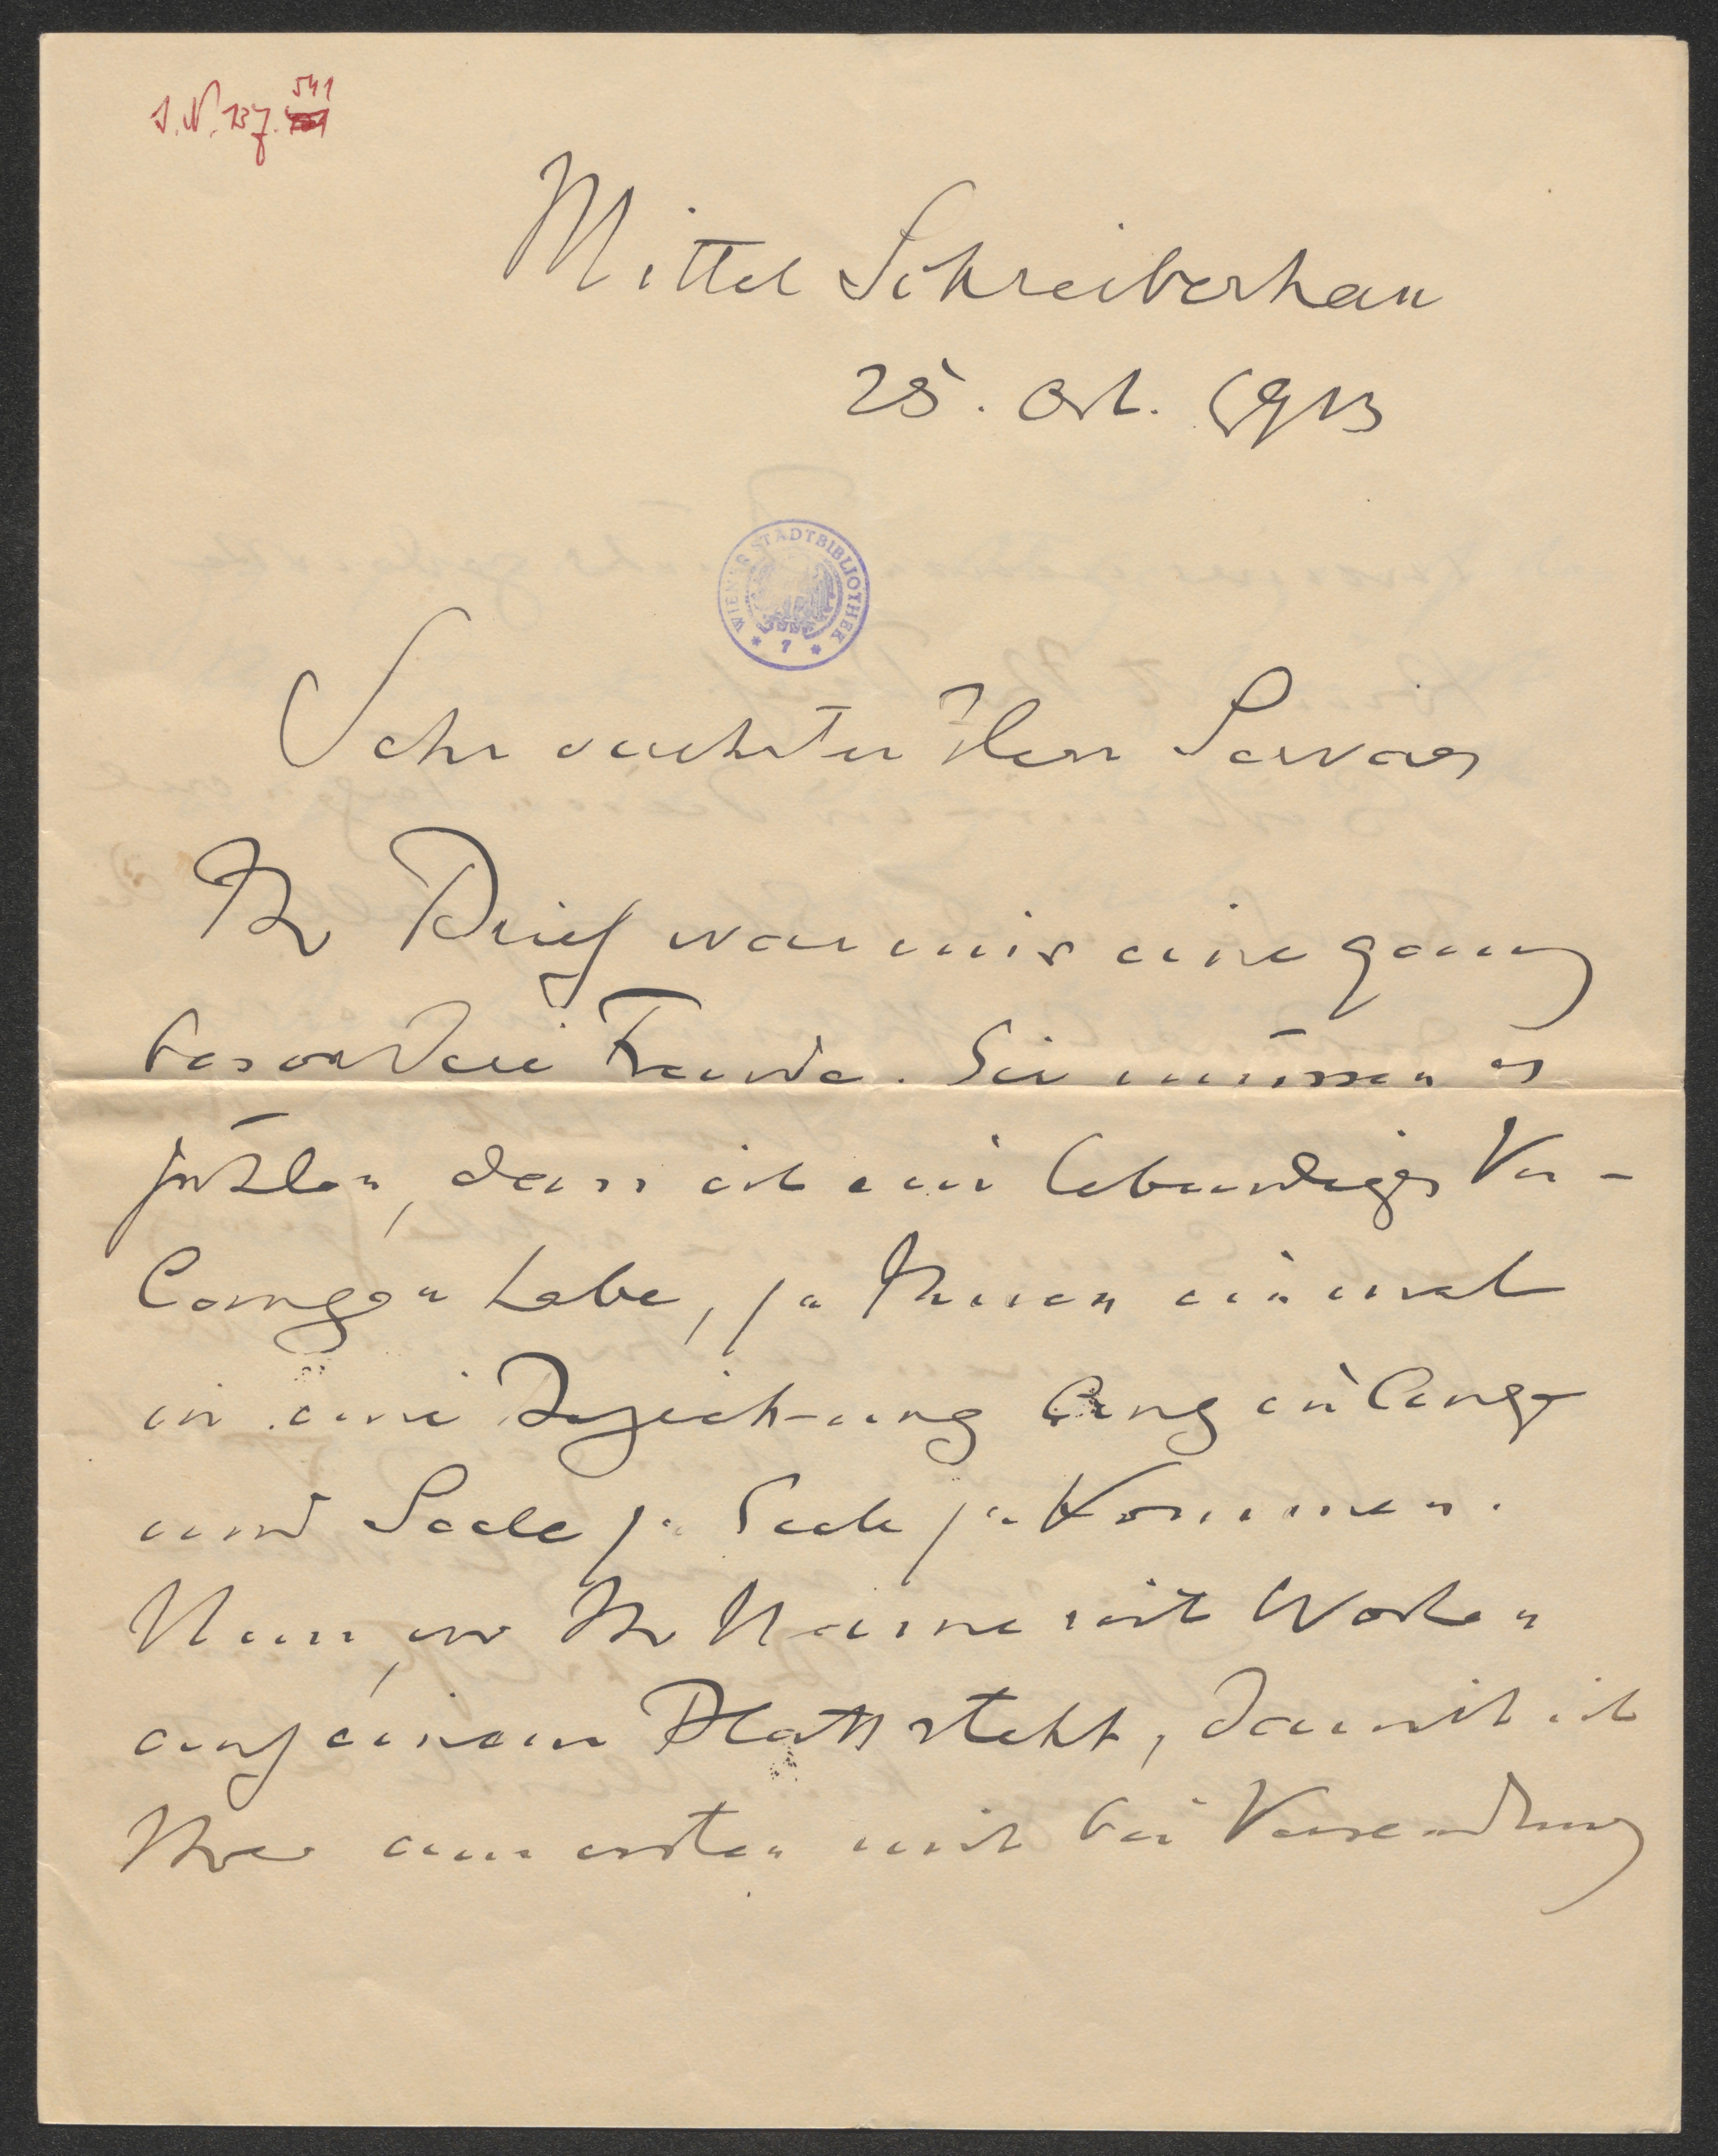 I.N. 137.541
Mittel Schreiberhau
25. Okt. 1913
WIENER STADTBIBLIOTHEK
* 7 *
Sehr verehrter Herr Servaes
Ihr Brief war mir eine ganz
besondere Freude. Sie müssen es
fühlen, dass ich ein lebendiges Ver-
langen habe, zu Ihnen einmal
in eine Beziehung Aug in Auge
und Seele zu Seele zu kommen.
Nun, wo Ihr Name mit Worten
auf einem Blatt steht, damit ich
Ihrer am ersten mit bei Versendung